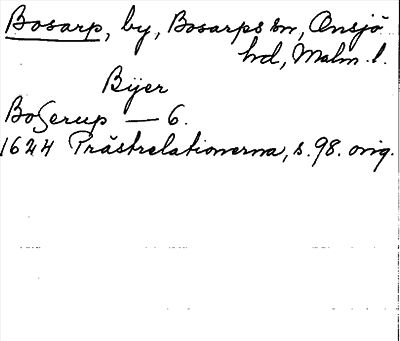 Bosarp, by, Bosarps sn, Onsjö
hd, Malm. l.
Byer
Boserup — 6.
1624 Prästrelationerna, s. 98. orig.